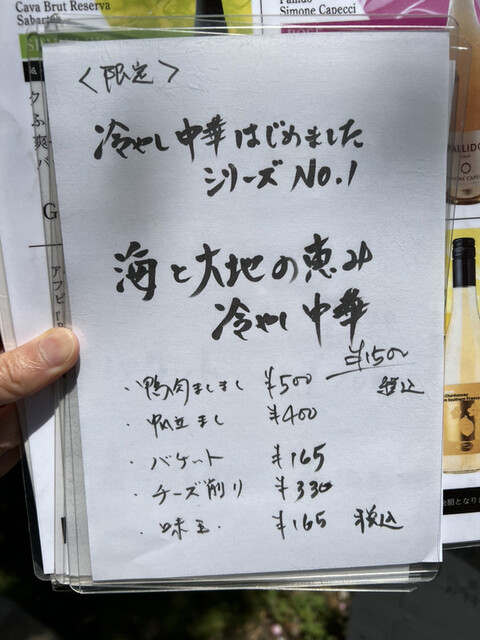 Cava Brut Reserva
Simone Capecci
〈限定〉
冷やし中華はじめました
シリーズ No.1
海と大地の恵み
冷やし中華
¥1500
税込
・鴨肉ましまし ¥500
・帆立まし ¥400
・バケット ¥165
・チーズ削り ¥330
・味玉 ¥165 税込